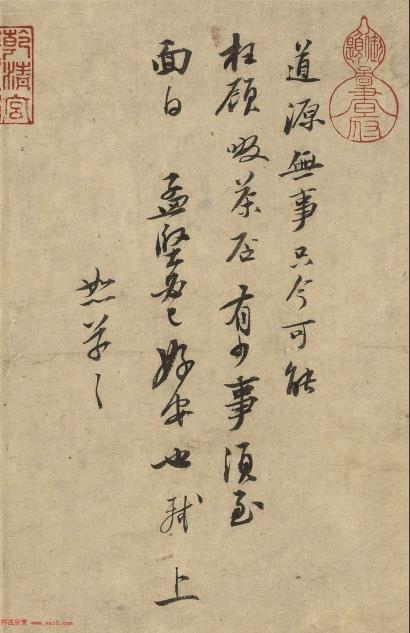 道源無事只今可能
枉顧啜茶否有少事須至
面白 孟堅必已好安也 軾 上
恕草〻
乾清宮
书法欣赏 www.yac8.com